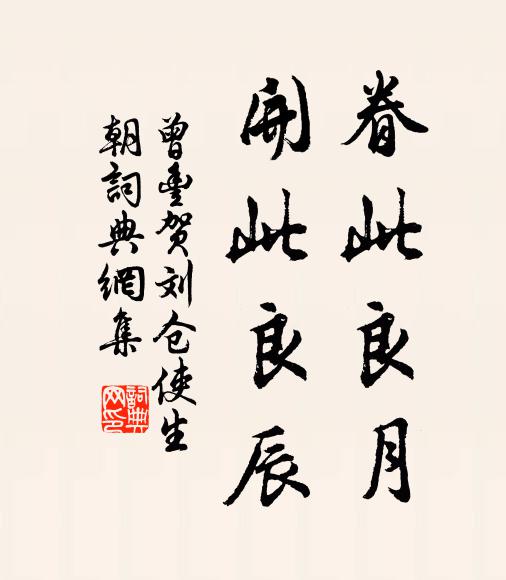 眷此良月
開此良辰
曾豐賀刘仓使生
朝詞典網集
詞典
网印